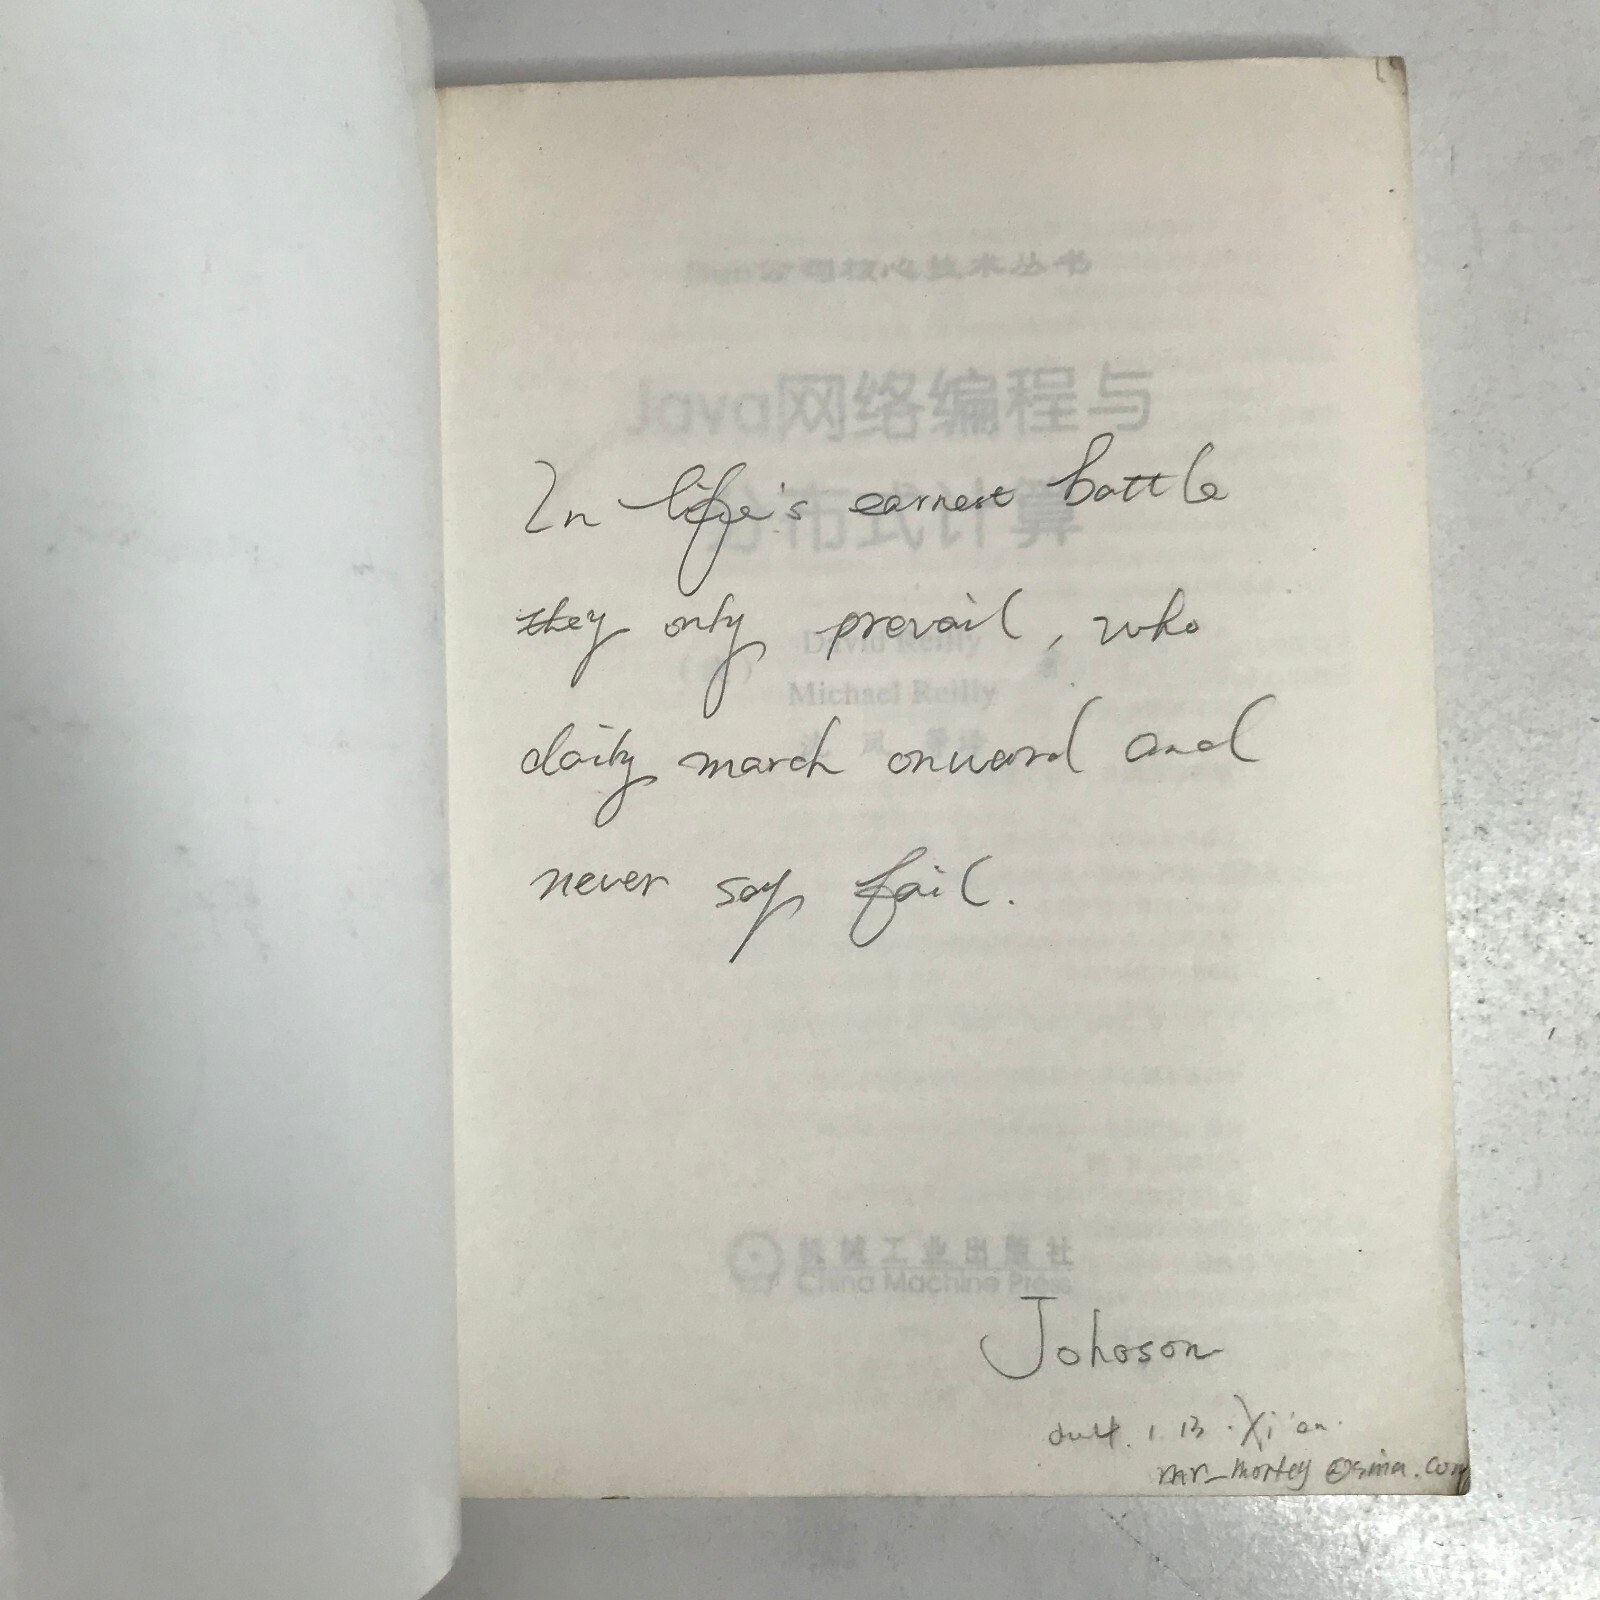 Sun公司核心技术丛书
Java网络编程与
分布式计算
In life's earnest battle
they only prevail, who
David Reilly
Michael Reilly
著
daily march onward and
never say fail.
机械工业出版社
China Machine Press
Johoson
1.13.Xi'an.
@sina.com